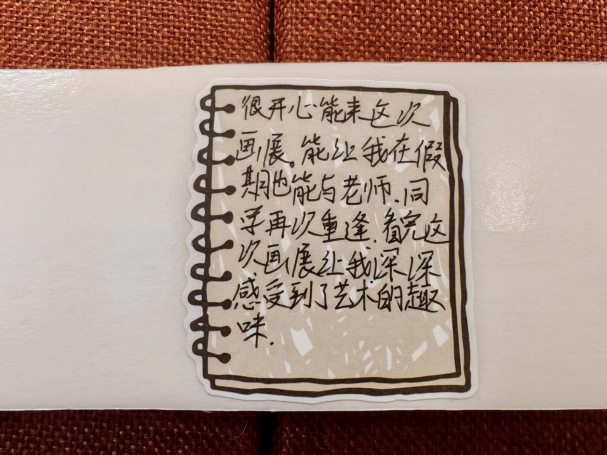 很开心能来这次
画展.能让我在假
期也能与老师、同
学再次重逢.看完这
次画展让我深深
感受到了艺术的趣
味.